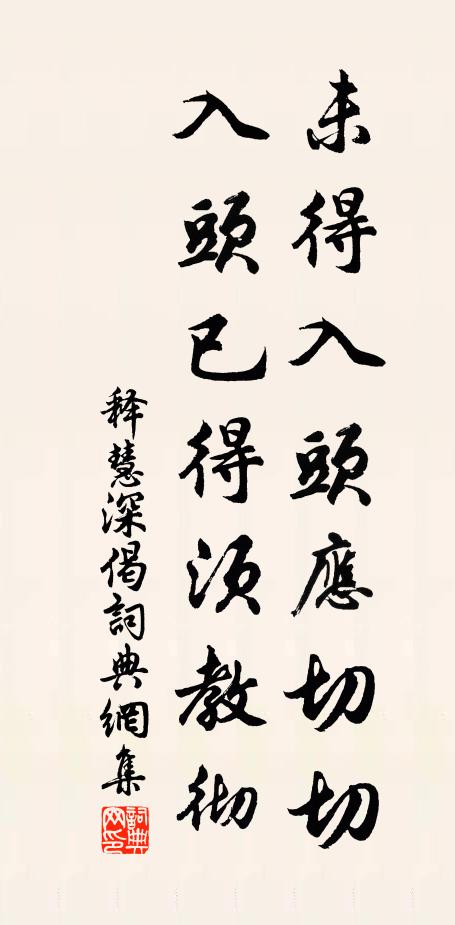 未得入頭應切切
入頭已得須教彻
释慧深偈詞典網集
詞典網印